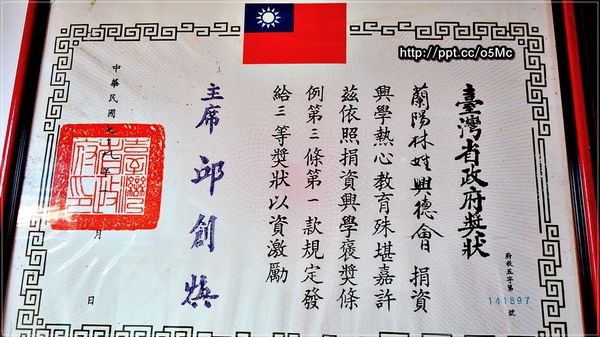 http://ppt.cc/o5Mc
臺灣省政府獎狀
府教五字第 141897 號
蘭陽林姓興德會 捐資
興學熱心教育殊堪嘉許
茲依照捐資興學褒獎條
例第三條第一款規定發
給三等獎狀以資激勵
主席 邱創煥
中華民國七十九年 月 日
臺灣省政府印